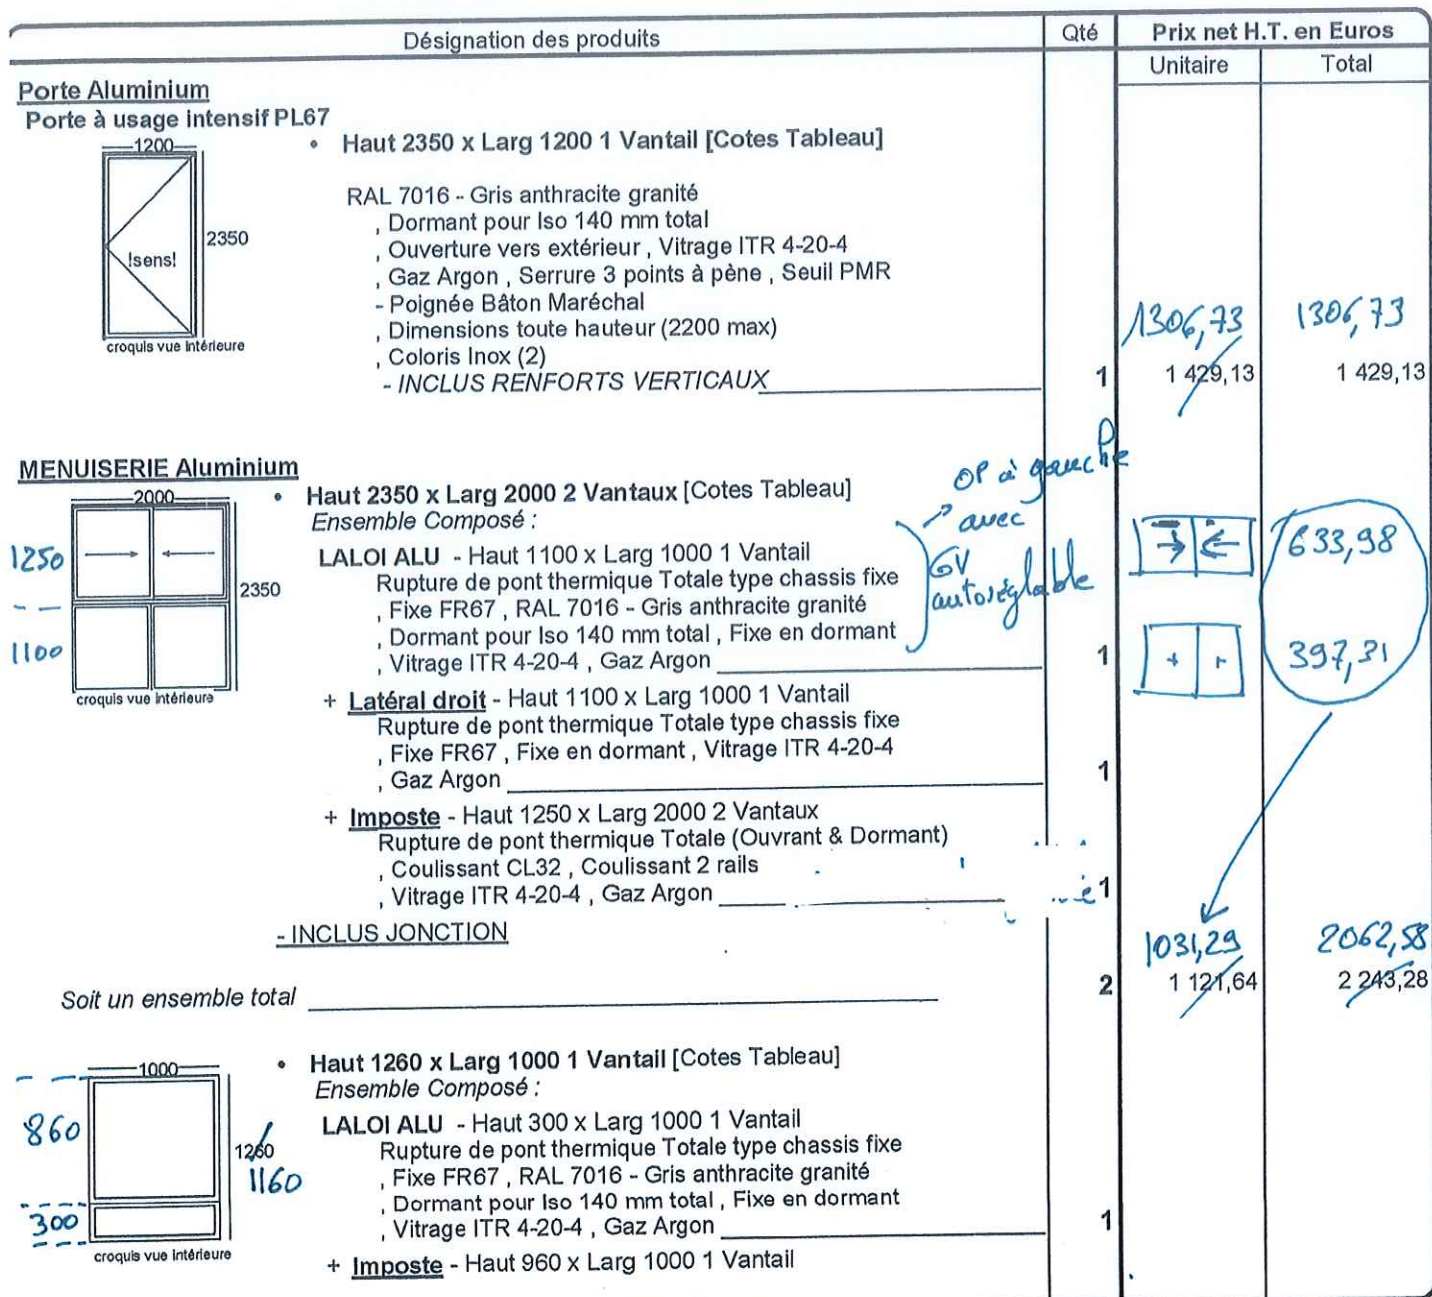 Désignation des produits
Qté
Prix net H.T. en Euros
Unitaire
Total
Porte Aluminium
Porte à usage intensif PL67
1200
2350
!sens!
croquis vue intérieure
• Haut 2350 x Larg 1200 1 Vantail [Cotes Tableau]
RAL 7016 - Gris anthracite granité
, Dormant pour Iso 140 mm total
, Ouverture vers extérieur , Vitrage ITR 4-20-4
, Gaz Argon , Serrure 3 points à pène , Seuil PMR
- Poignée Bâton Maréchal
, Dimensions toute hauteur (2200 max)
, Coloris Inox (2)
1306,73 1306,73
- INCLUS RENFORTS VERTICAUX 1 1 429,13 1 429,13
MENUISERIE Aluminium
2000
1250
2350
1100
croquis vue intérieure
• Haut 2350 x Larg 2000 2 Vantaux [Cotes Tableau]
Ensemble Composé :
OP à gauche
avec
GV
autoréglable
633,98
397,31
LALOI ALU - Haut 1100 x Larg 1000 1 Vantail
Rupture de pont thermique Totale type chassis fixe
, Fixe FR67 , RAL 7016 - Gris anthracite granité
, Dormant pour Iso 140 mm total , Fixe en dormant
, Vitrage ITR 4-20-4 , Gaz Argon 1
+ Latéral droit - Haut 1100 x Larg 1000 1 Vantail
Rupture de pont thermique Totale type chassis fixe
, Fixe FR67 , Fixe en dormant , Vitrage ITR 4-20-4
, Gaz Argon 1
+ Imposte - Haut 1250 x Larg 2000 2 Vantaux
Rupture de pont thermique Totale (Ouvrant & Dormant)
, Coulissant CL32 , Coulissant 2 rails
, Vitrage ITR 4-20-4 , Gaz Argon 1
- INCLUS JONCTION
1031,29 2062,58
Soit un ensemble total 2 1 121,64 2 243,28
1000
860
1260
1160
300
croquis vue intérieure
• Haut 1260 x Larg 1000 1 Vantail [Cotes Tableau]
Ensemble Composé :
LALOI ALU - Haut 300 x Larg 1000 1 Vantail
Rupture de pont thermique Totale type chassis fixe
, Fixe FR67 , RAL 7016 - Gris anthracite granité
, Dormant pour Iso 140 mm total , Fixe en dormant
, Vitrage ITR 4-20-4 , Gaz Argon 1
+ Imposte - Haut 960 x Larg 1000 1 Vantail